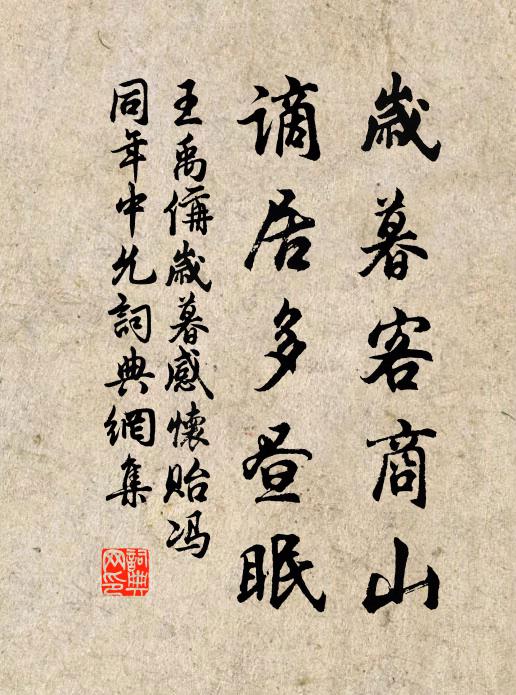 歲暮客商山
謫居多昼眠
王禹偁歲暮感懷貽冯
同年中允詞典網集
詞典網印